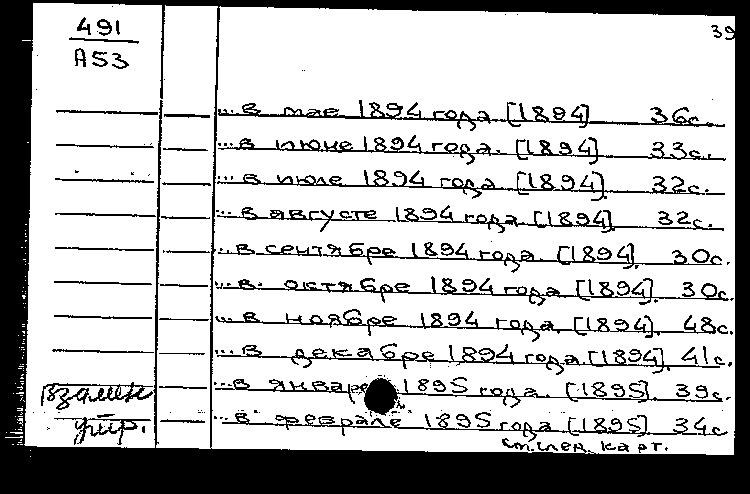 491
A53
39
... в мае 1894 года [1894] 36с.
... в июне 1894 года. [1894] 33с.
... в июле 1894 года. [1894]. 32с.
... в августе 1894 года. [1894]. 32с.
... в сентябре 1894 года. [1894]. 30с.
... в октябре 1894 года. [1894]. 30с.
... в ноябре 1894 года. [1894]. 48с.
... в декабре 1894 года. [1894]. 41с.
... в январе 1895 года. [1895]. 39с.
... в феврале 1895 года. [1895]. 34с
взамен
утр.
см. след. карт.